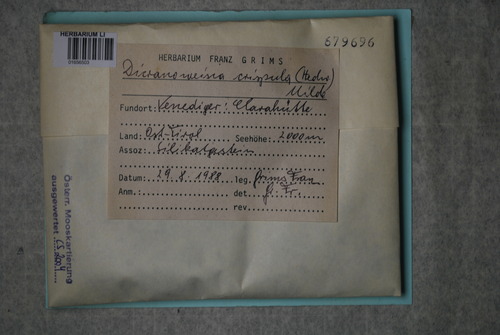 HERBARIUM LI
679696
HERBARIUM FRANZ GRIMS
Dicranoweisia crispula (Hedw.)
Milde
Fundort: Venediger: Clarahütte
Land: Ost-Tirol Seehöhe: 2000 m
Assoz: Silikatgestein
Datum: 29. 8. 1988 leg. Grims Franz
Anm.: det. G. Fr.
rev.
Österr. Mooskartierung
ausgewertet